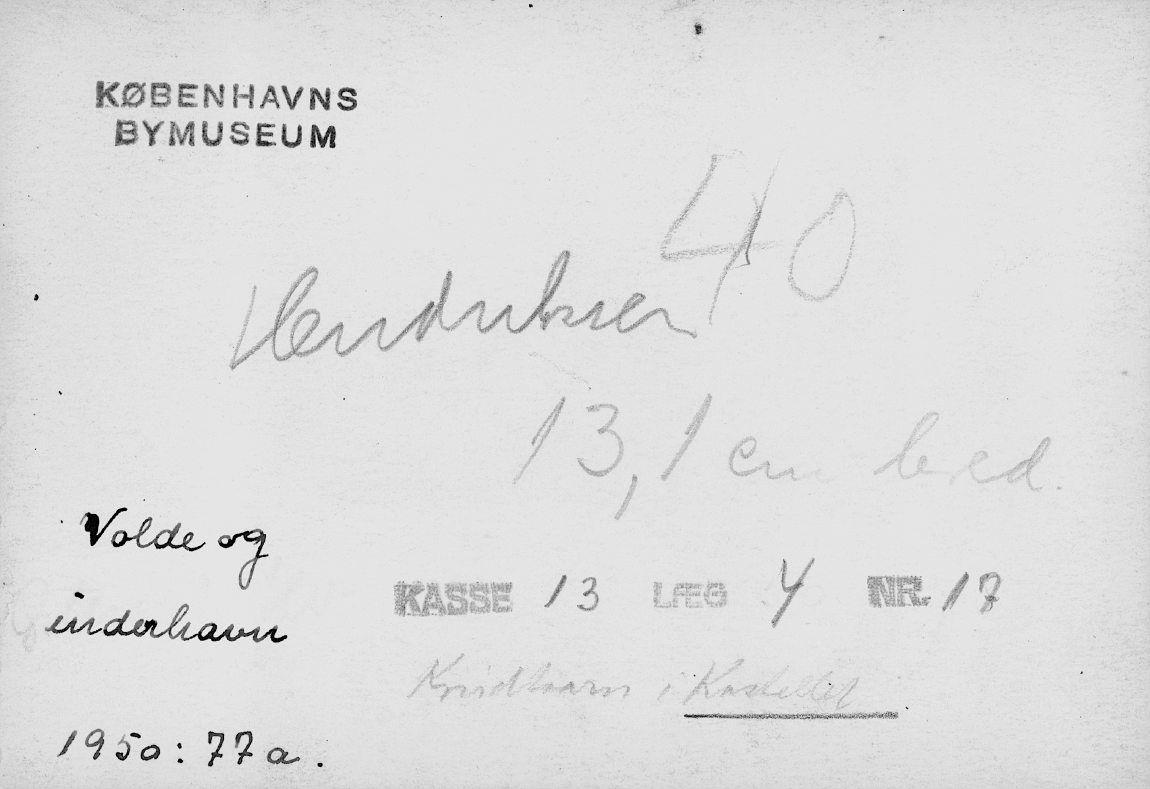 KØBENHAVNS
BYMUSEUM
40
Hendriksen
13,1 cm bred.
Volde og
inderhavn
KASSE 13 LÆG 4 NR. 17
i Kastellet
1950: 77a.